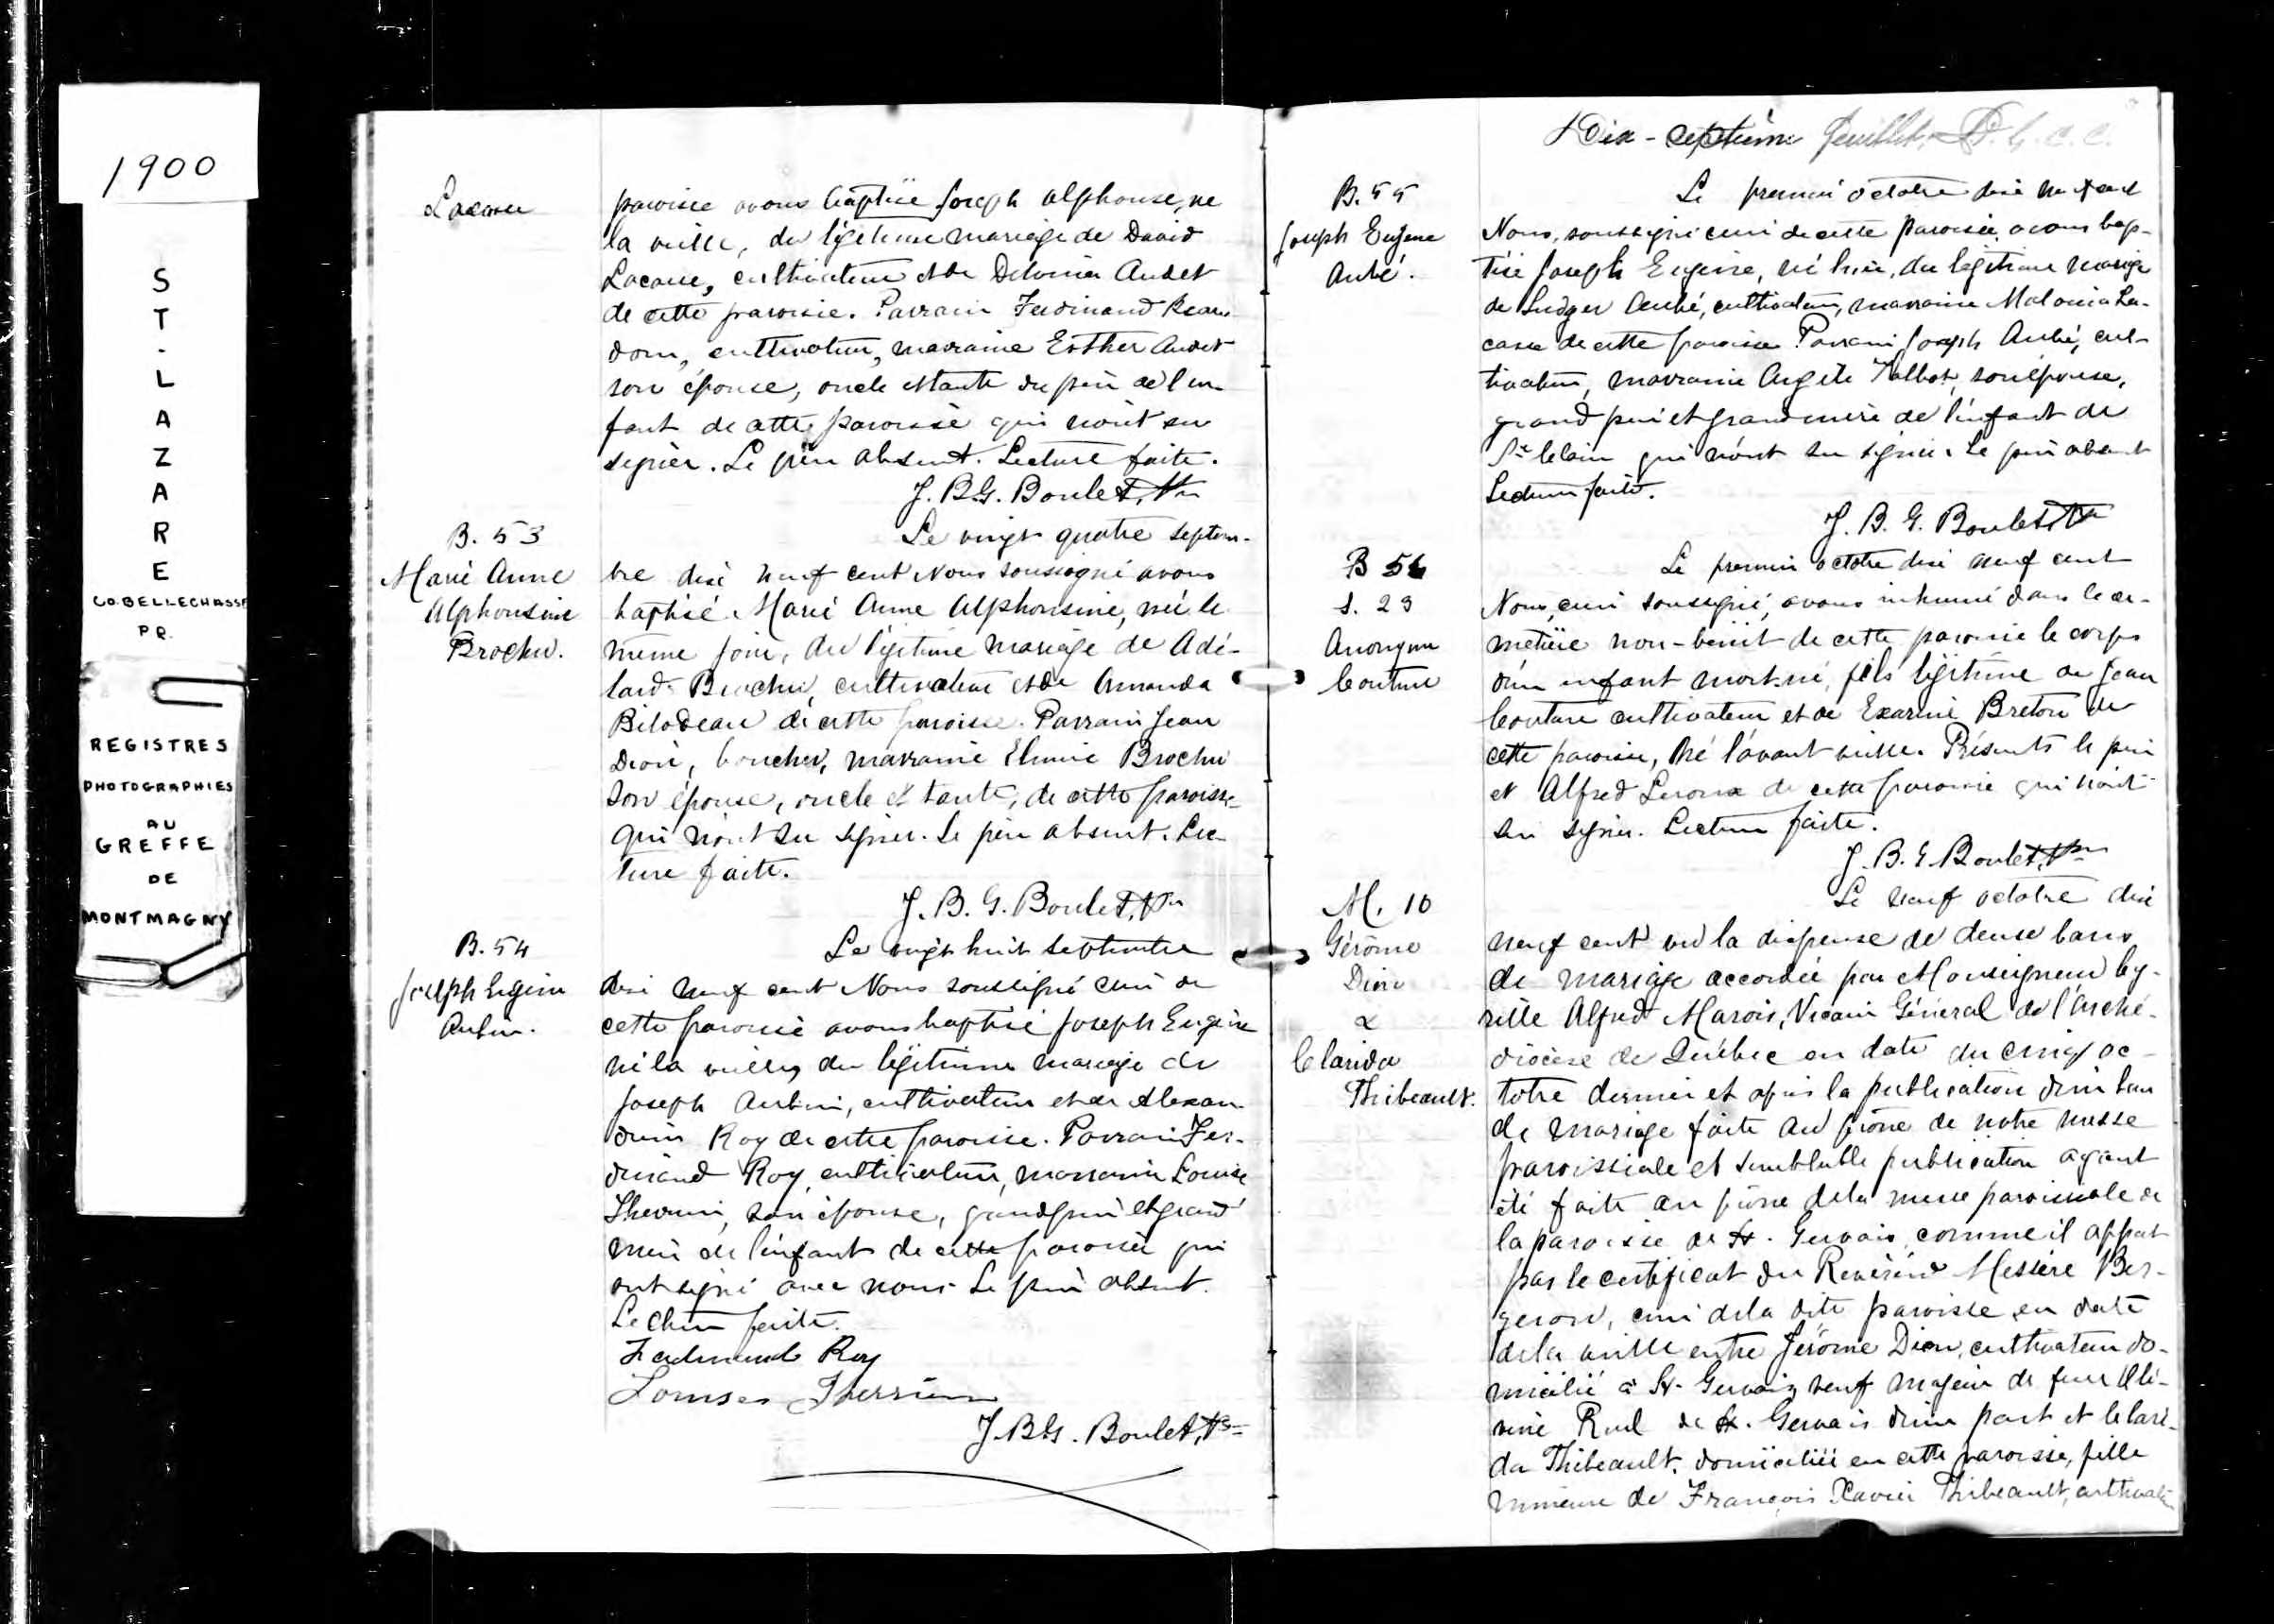 1900
ST-LAZARE
CO. BELLECHASSE
P.Q.
REGISTRES
PHOTOGRAPHIES
AU
GREFFE
DE
MONTMAGNY
Lacasse
paroisse avons baptisé Joseph Alphonse, né
la veille, du légitime mariage de David
Lacasse, cultivateur et de Audet
de cette paroisse. Parrain Ferdinand Beau-
doin, cultivateur, marraine Esther Audet
son épouse, oncle et tante du père de l'en-
fant de cette paroisse qui n'ont su
signer. Le père absent. Lecture faite.
J. B. G. Boulet, Ptre
B. 53
Marie Anne
Alphonsine
Brochu.
Le vingt quatre septem-
bre dix neuf cent Nous soussigné avons
baptisé Marie Anne Alphonsine, née le
même jour, du légitime mariage de Adé-
lard Brochu, cultivateur et de Amanda
Bilodeau de cette paroisse. Parrain Jean
Dion, boucher, marraine Brochu
son épouse, oncle et tante, de cette paroisse
qui n'ont su signer. Le père absent. Lec-
ture faite.
J. B. G. Boulet, Ptre
B. 54
Joseph Eugène
Aubin.
Le vingt huit septembre
dix neuf cent Nous soussigné curé de
cette paroisse avons baptisé Joseph Eugène
né la veille, du légitime mariage de
Joseph Aubin, cultivateur et de Alexan-
drine Roy de cette paroisse. Parrain Fer-
dinand Roy, cultivateur, marraine Louise
Therrien, son épouse, grandpère et grand
mère de l'enfant de cette paroisse qui
ont signé avec nous. Le père absent.
Lecture faite.
Ferdinand Roy
Louise Therrien
J. B. G. Boulet, Ptre
Dix-septième feuillet.
B. 55
Joseph Eugène
Aubé.
Le premier octobre dix neuf cent
Nous, soussigné curé de cette paroisse, avons bap-
tisé Joseph Eugène, né hier, du légitime mariage
de Ludger Aubé, cultivateur, marraine La-
casse de cette paroisse. Parrain Joseph Aubé, cul-
tivateur, marraine Talbot, son épouse,
grand père et grand mère de l'enfant de
qui n'ont su signer. Le père absent
Lecture faite.
J. B. G. Boulet, Ptre
B 56
S. 23
Anonyme
Couture
Le premier octobre dix neuf cent
Nous, curé soussigné, avons inhumé dans le ci-
metière non-bénit de cette paroisse le corps
d'un enfant mort-né, fils légitime de Jean
Couture cultivateur et de Exarine Breton de
cette paroisse, né l'avant veille. Présents le père
et Alfred Leroux de cette paroisse qui n'ont
su signer. Lecture faite.
J. B. G. Boulet, Ptre
M. 10
Gérôme
Dion
&
Clarida
Thibeault.
Le neuf octobre dix
neuf cent vu la dispense de deux bans
de mariage accordée par Monseigneur Cy-
rille Alfred Marois, Vicaire Général de l'Arché-
diocèse de Québec en date du cinq oc-
tobre dernier et après la publication d'un ban
de mariage faite au prône de notre messe
paroissiale et semblable publication ayant
été faite au prône de la messe paroissiale de
la paroisse de St. Gervais, comme il appert
par le certificat du Révérend Messire Ber-
geron, curé de la dite paroisse, en date
de la veille entre Jérôme Dion, cultivateur do-
micilié à St. Gervais, veuf majeur de feue Oli-
vine de St. Gervais d'une part et Clari-
da Thibeault. domiciliée en cette paroisse, fille
mineure de François Xavier Thibeault, cultivateur